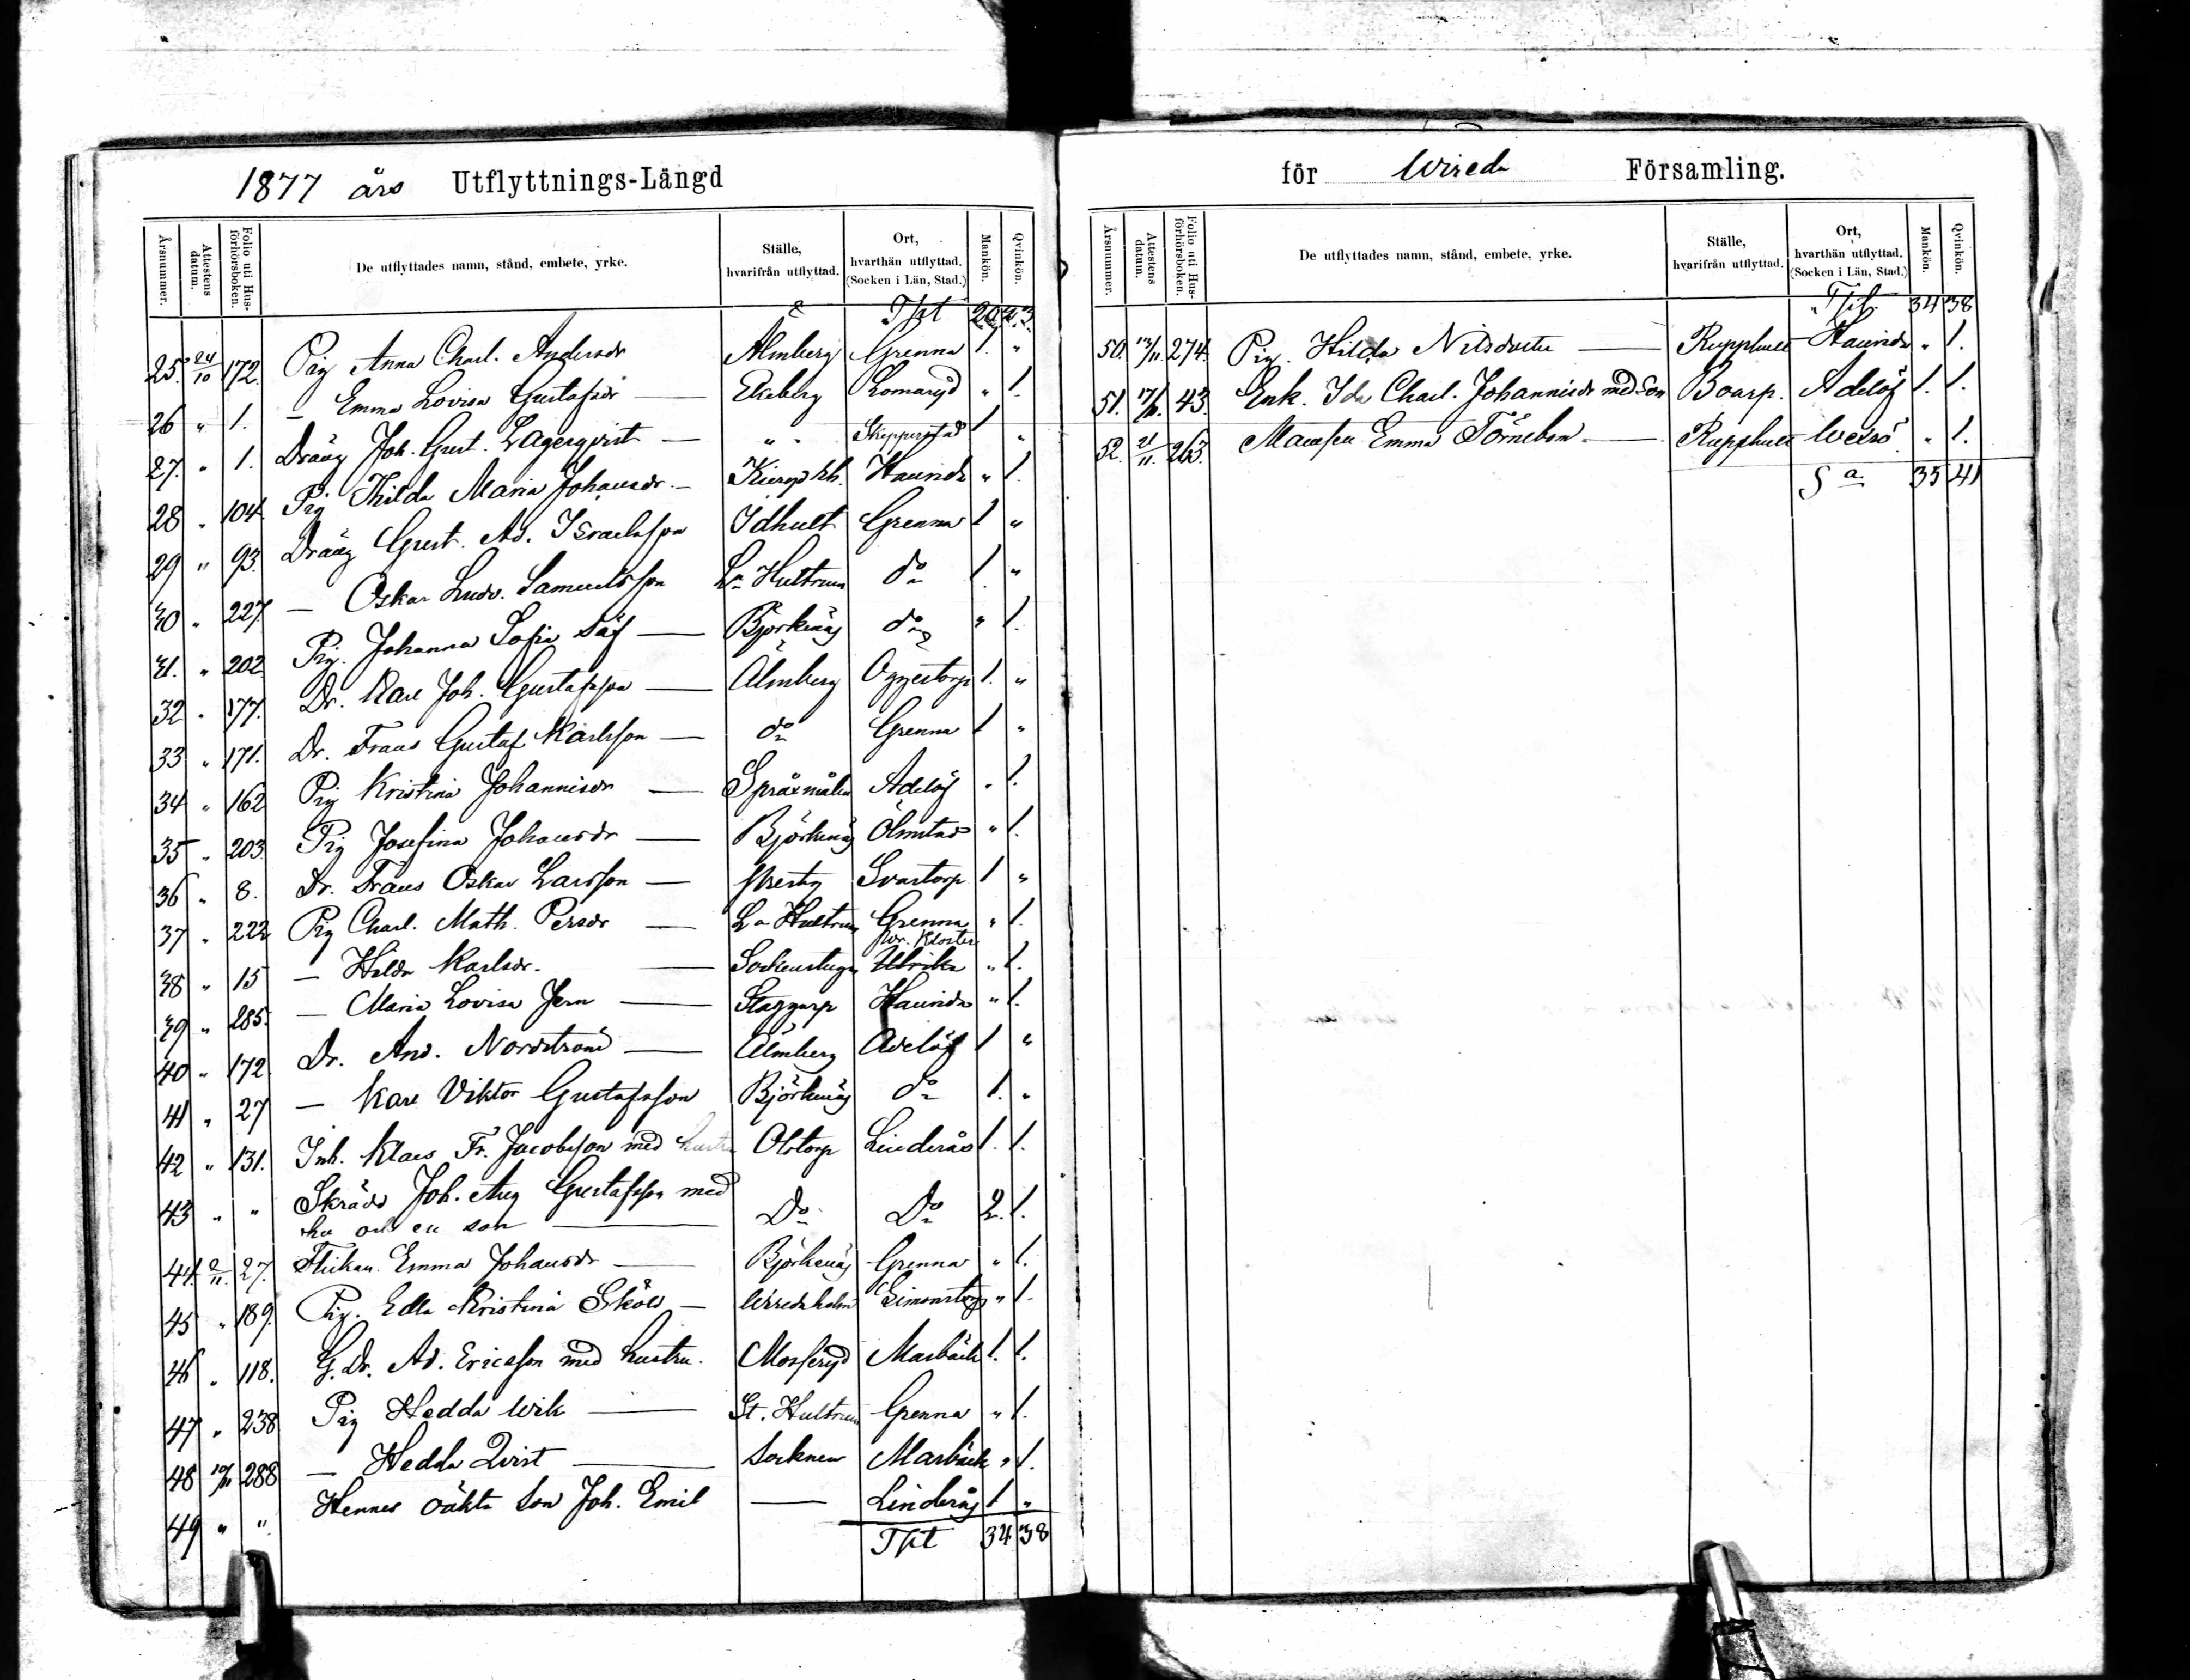 1877 års Utflyttnings-Längd
Årsnummer. Attestens datum. Folio uti Husförhörsboken. De utflyttades namn, stånd, embete, yrke. Ställe, hvarifrån utflyttad. Ort, hvarthän utflyttad. (Socken i Län, Stad.) Mankön. Qvinkön.
Tpt 20 23
25. 24/10 172. Pig Anna Charl. Andersdr Älmberg Grenna 1. "
26 " 1. — Emma Lovisa Gustafsdr — Ekeberg Lomaryd " 1.
27. " 1. Dräng Joh. Gust. Lagerqvist — " " Skepperstad 1 "
28 " 104. Pig Thilda Maria Johansdr. — Haurida " 1.
29 " 93. Dräng Gust. Ad. Israelsson Idhult Grenna 1 "
30 " 227. — Oskar Ludv. Samuelsson La Hultrum do 1. "
31. " 202 Pig. Johanna Sofia Säf — Björkenäs do " 1.
32 " 177. Dr. Karl Joh. Gustafsson — Älmberg Öggestorp 1. "
33 " 171. Dr. Frans Gustaf Karlsson — do Grenna 1 "
34 " 162 Pig Kristina Johannisdr — Adelöf " 1.
35 " 203 Pig Josefina Johansdr — Björkenäs Ölmstad " 1.
36 " 8. Dr. Frans Oskar Larsson — Svartorp 1 "
37 " 222 Pig Charl. Math. Persdr — La Hultrum Grenna " 1.
38 " 15 — Hilda Karlsdr. — Sockenstugan Vr. Kloster Ulrika " 1.
39 " 285. — Maria Lovisa Jern — Staggarp Haurida " 1.
40 " 172 Dr. And. Nordström — Älmberg Adelöf 1 "
41 " 27 — Karl Viktor Gustafsson Björkenäs do 1. "
42 " 131. Inh. Klaes Fr. Jacobsson med hustru Olstorp Linderås 1. 1.
43 " " Skrädd Joh. Aug Gustafsson med
hu och en son — Do Do 2. 1.
44. 2/11. 27. Flickan Emma Johansdr — Björkenäs Grenna " 1.
45 " 189. Pig. Edla Kristina Sköld — Wredsholm Simonstorp " 1.
46 " 118. G. Dr. Ad. Ericsson med hustru. Mosseryd Marbäck 1. 1.
47 " 238 Pig Hedda Wik — St. Hultrum Grenna " 1.
48 10/11 288 — Hedda Qvist — Socknen Marbäck " 1.
49 " " Hennes oäkta son Joh. Emil — Linderås 1 "
Tpt 34 38
för Wireda Församling.
Årsnummer. Attestens datum. Folio uti Husförhörsboken. De utflyttades namn, stånd, embete, yrke. Ställe, hvarifrån utflyttad. Ort, hvarthän utflyttad. (Socken i Län, Stad.) Mankön. Qvinkön.
Tpt. 34 38
50. 13/11. 274. Pig. Hilda Nilsdotter — Rupphult Haurida " 1.
51. 17/11. 43. Enk. Ida Charl. Johannisdr med son Boarp. Adelöf 1. 1.
52. 21/11. 263. Mamsell Emma Törneblom — Rupphult Wexiö " 1.
Sa 35 41